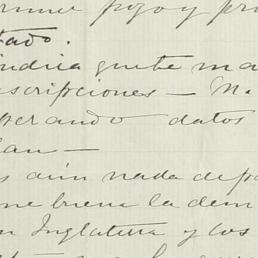 pozo y pr
tado.
indria gente ma
scripciones — N.
perando datos
lan —
s aún nada de pa
ne buena la dem
n Inglaterra y los